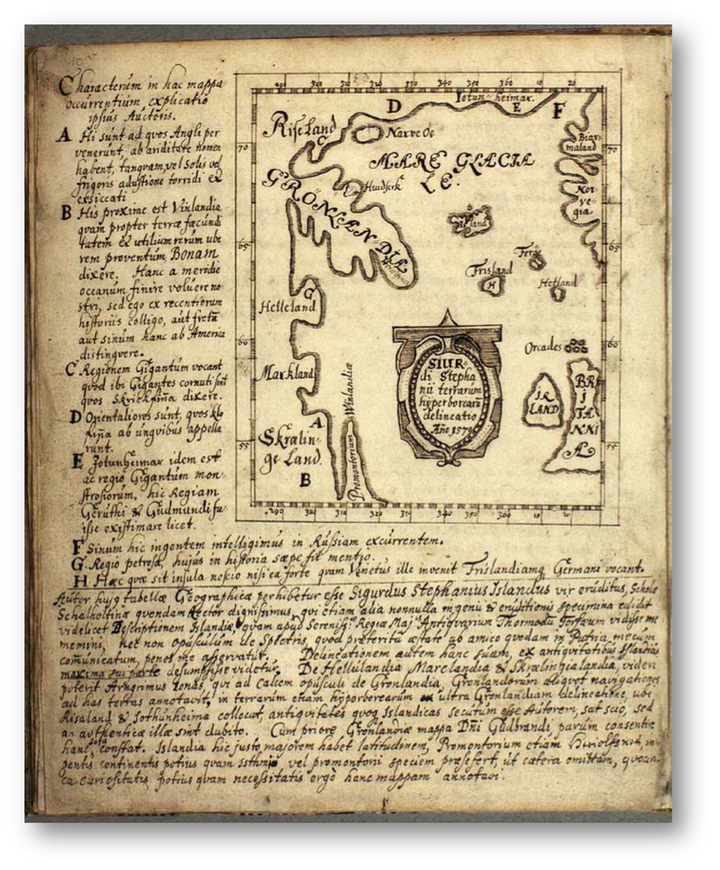 Characterum in hac mappa
occurrentium, explicatio
ipsius Auctoris.
A Hi sunt ad quos Angli per
venerunt, ab ariditate nomen
habent, tanquam vel Solis vel
frigoris adustione torridi et
exsiccati
B His proxime est Vinlandia
quam propter terræ fæcundi
tatem et utilium rerum ube
rem proventum, Bonam
dixere. Hanc a meridie
oceanum finire voluere no
stri, sed ego ex recentiorum
historiis colligo, aut fretū
aut sinum hanc ab America
distinguere.
C Regionem Gigantum vocant
quod ibi Gigantes cornuti sint
quos Skrickfinna dixere.
D Orientaliores sunt, quos Klo
finna ab unguibus appella
runt.
E Jotunheimar idem est
ac regio Gigantum mon
strosorum, hic Regiam
Geruthi & Gudmundi fu
isse existimare licet.
F Sinum hic ingentem intelligimus in Russiam excurrentem.
G. Regio petrosa, hujus in historia sæpe fit mentio.
H Hæc quæ sit insula nescio nisi ea forte quam Venetus ille invenit Frislandiamq Germani vocant.
D
Jotunheimar.
E
F
Riseland
C
Narve Oe
Biar
maland
MARE GLACIA
LE.
GRONLANDIA
Huidserk
Nor
ve
gia
Island
Herjolfsnes
Feroe
Frisland
H
Hetland
G
Helleland
Orcades
SIUR
di Stepha
nii terrarum
hyperboreaū
delineatio
Año 1570
Markland
IR
LAND
BRI
TAN
NIA
A
Skralin
ge Land
B
Promontorium Winlandiæ
Autor hujq tabellæ Geographicæ perhibetur esse Sigurdus Stephanius Islandus vir eruditus, Scholæ
Schalholtinæ quondam Rector dignissimus, qui etiam alia nonnulla ingenii & eruditionis specimina edidit
videlicet Descriptionem Islandiæ, quam apud Sereniss. Regiæ Maj. Antiqvarium Thormodū Torfæum vidisse me
memini, nec non opusculum de Spectris, quod præteritâ æstate ab amico quodam in Patria mecum
com̄unicatum, penes me asservatur. Delineationem autem hanc suam, ex antiquitatibus Islandicis
maxima sui parte desumpsisse videtur. De Hellulandia Marclandia & Skrælingialandia, videri
poterit Arngrimus Jonas, qui ad calcem opusculi de Gronlandia, Gronlandorum aliquot navigationes
ad has terras annotavit, in terrarum etiam hyperborearum ultra Gronlandiam delineatione, ubi
Risaland & Jothunheima collocat, antiquitates quoq Islandicas secutum esse Autorem, sat scio, sed
an authenticæ illæ sint dubito. Cum priore Gronlandiæ mappa Dn̄i Gudbrandi parum consentire
hanc constat. Islandia hic justo majorem habet latitudinem, Promontorium etiam Heriolfsnes, in
gentis continentis potius quam isthmi vel promontorii speciem præsefert, ut cætera omittam,
ca curiositatis potius quam necessitatis ergò hanc mappam annotavi.